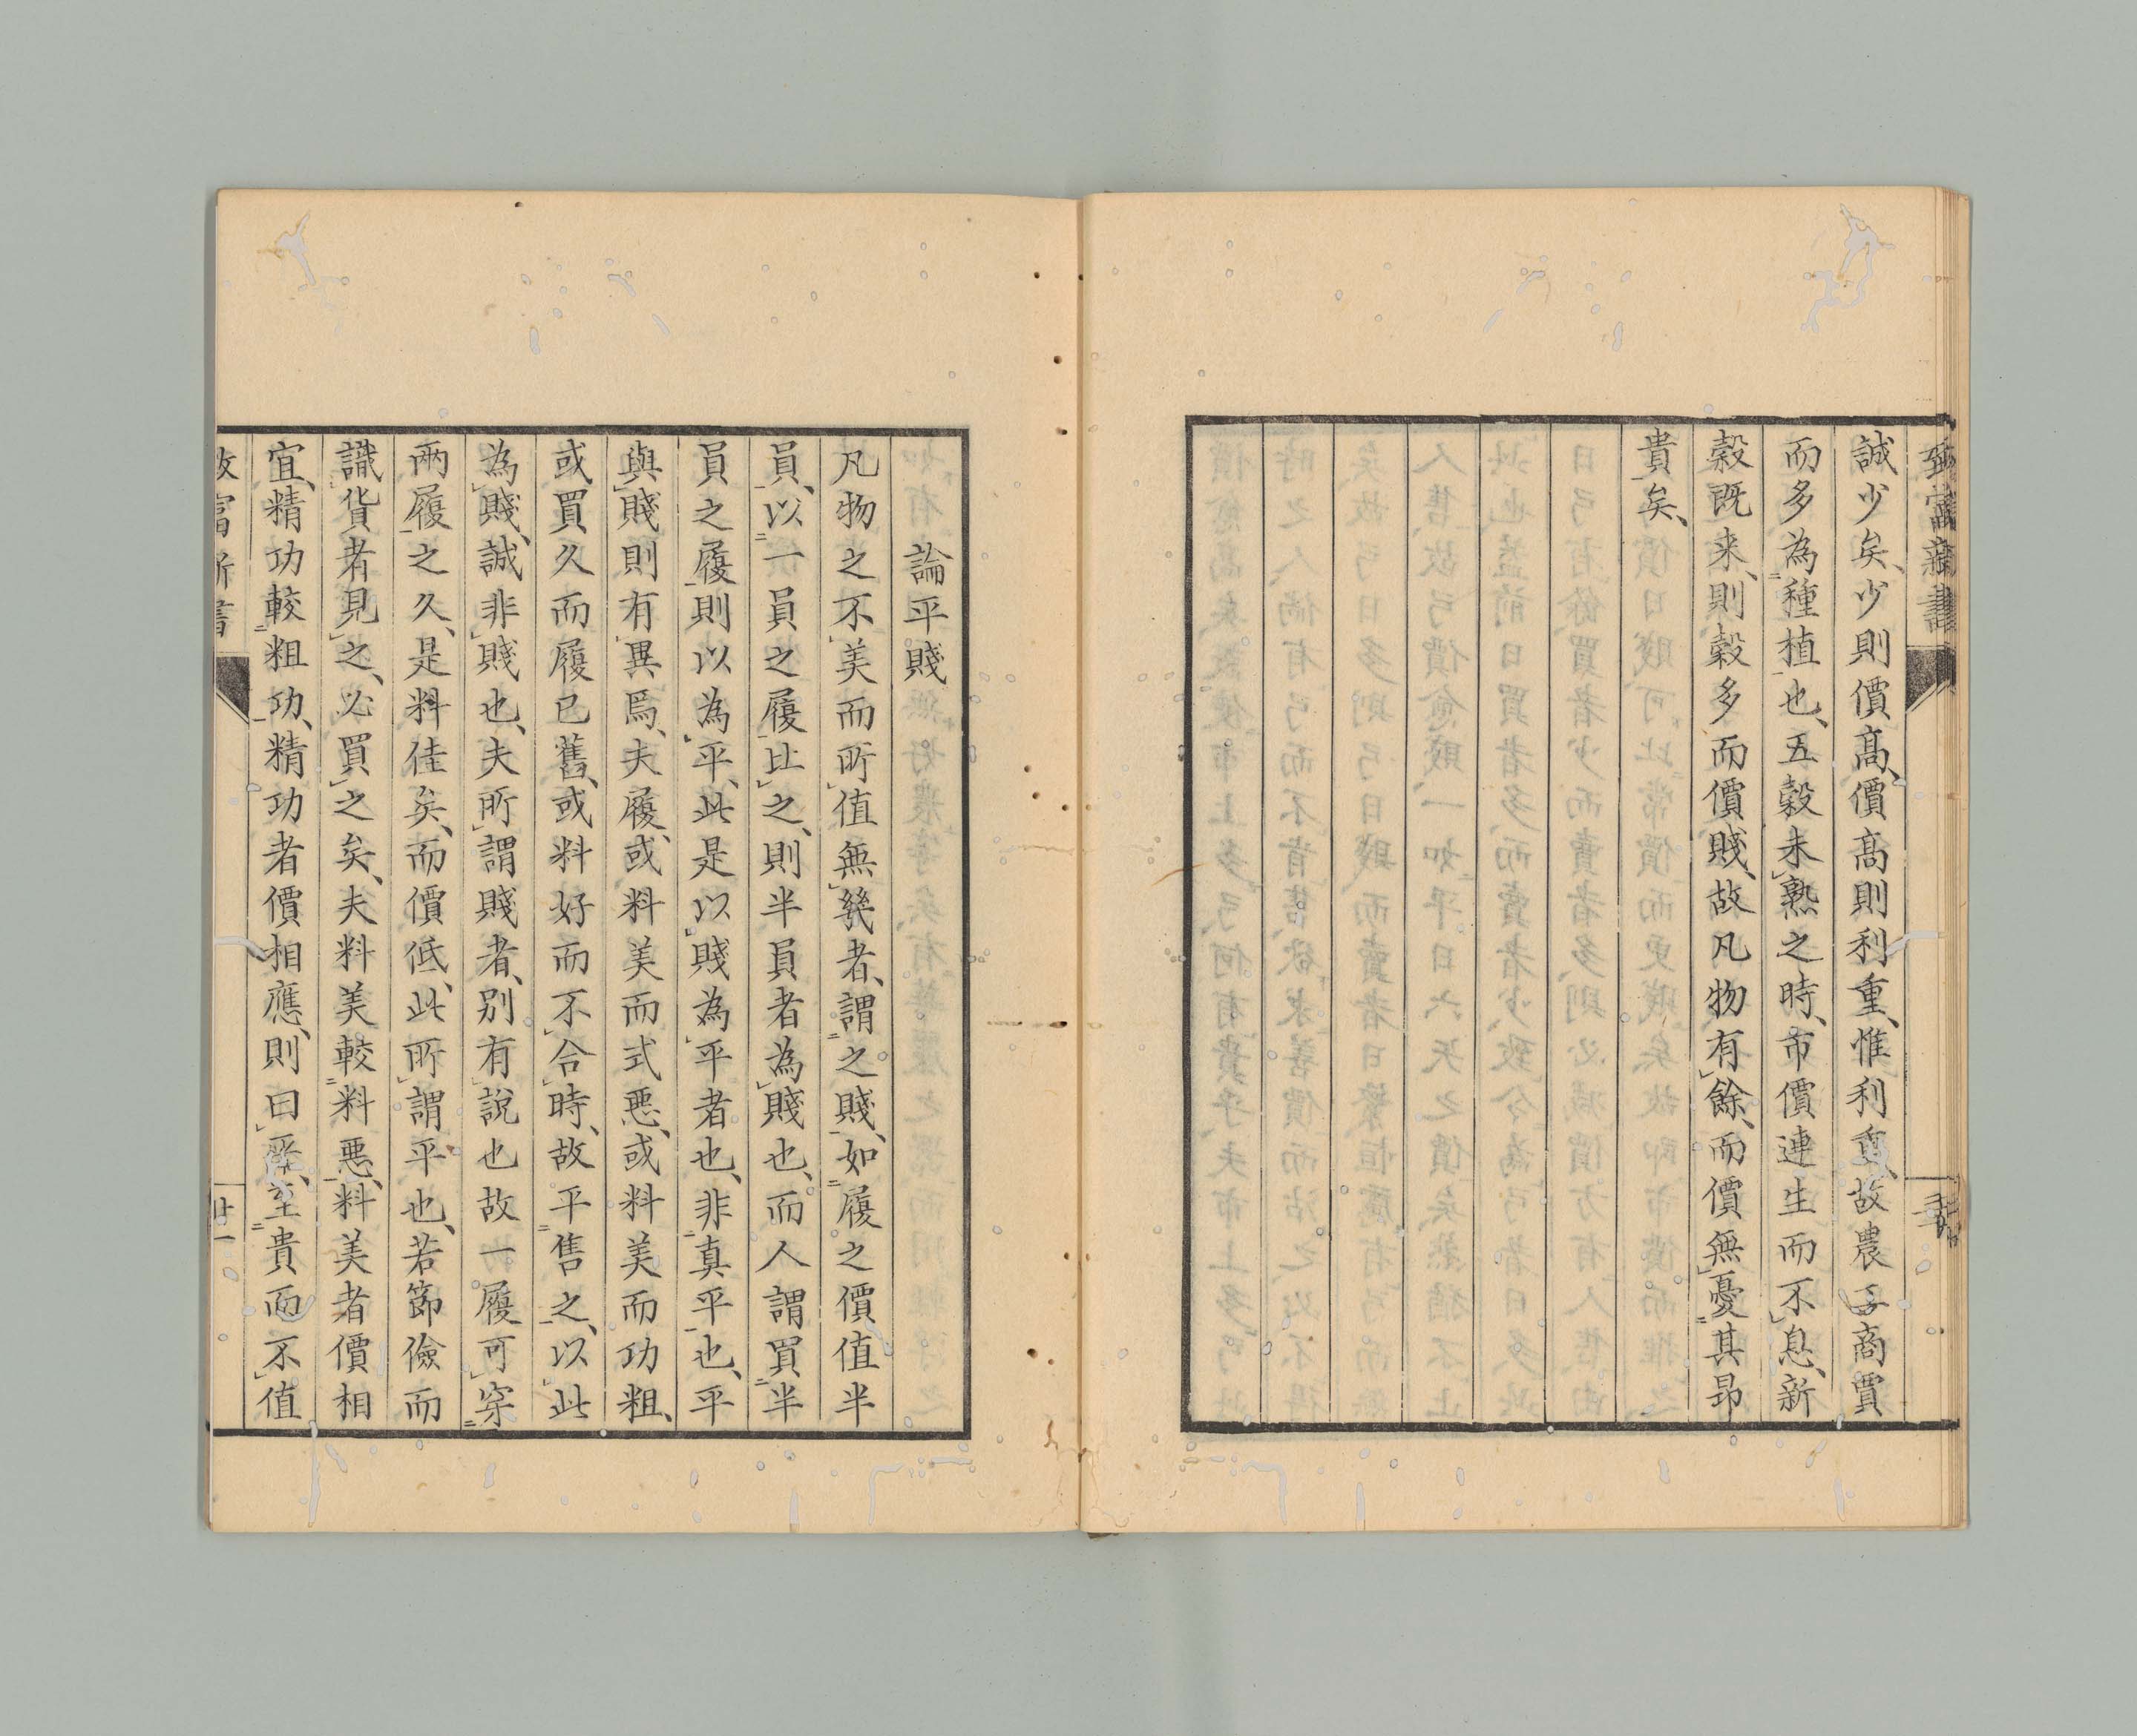 誠少矣、少則價高、價高則利重、惟利重、故農工商賈
而多為種植也、五穀未熟之時、市價連生而不息、新
穀既来、則穀多而價賤、故凡物有餘、而價無憂其昂
貴矣、
論平賤
凡物之不美而所值無幾者、謂之賤、如履之價值半
員、以一員之履比之、則半員者為賤也、而人謂買半
員之履則以為平、此是以賤為平者也、非真平也、平
與賤則有異焉、夫履、或料美而式惡、或料美而功粗、
或買久而履已舊、或料好而不合時、故平售之、以此
為賤、誠非賤也、夫所謂賤者、別有說也故一履可穿
兩履之久、是料佳矣、而價低、此所謂平也、若節儉而
識貨者見之、必買之矣、夫料美較料惡、料美者價相
宜、精功較粗功、精功者價相應、則曰平、至貴而不值
致富新書
廿一